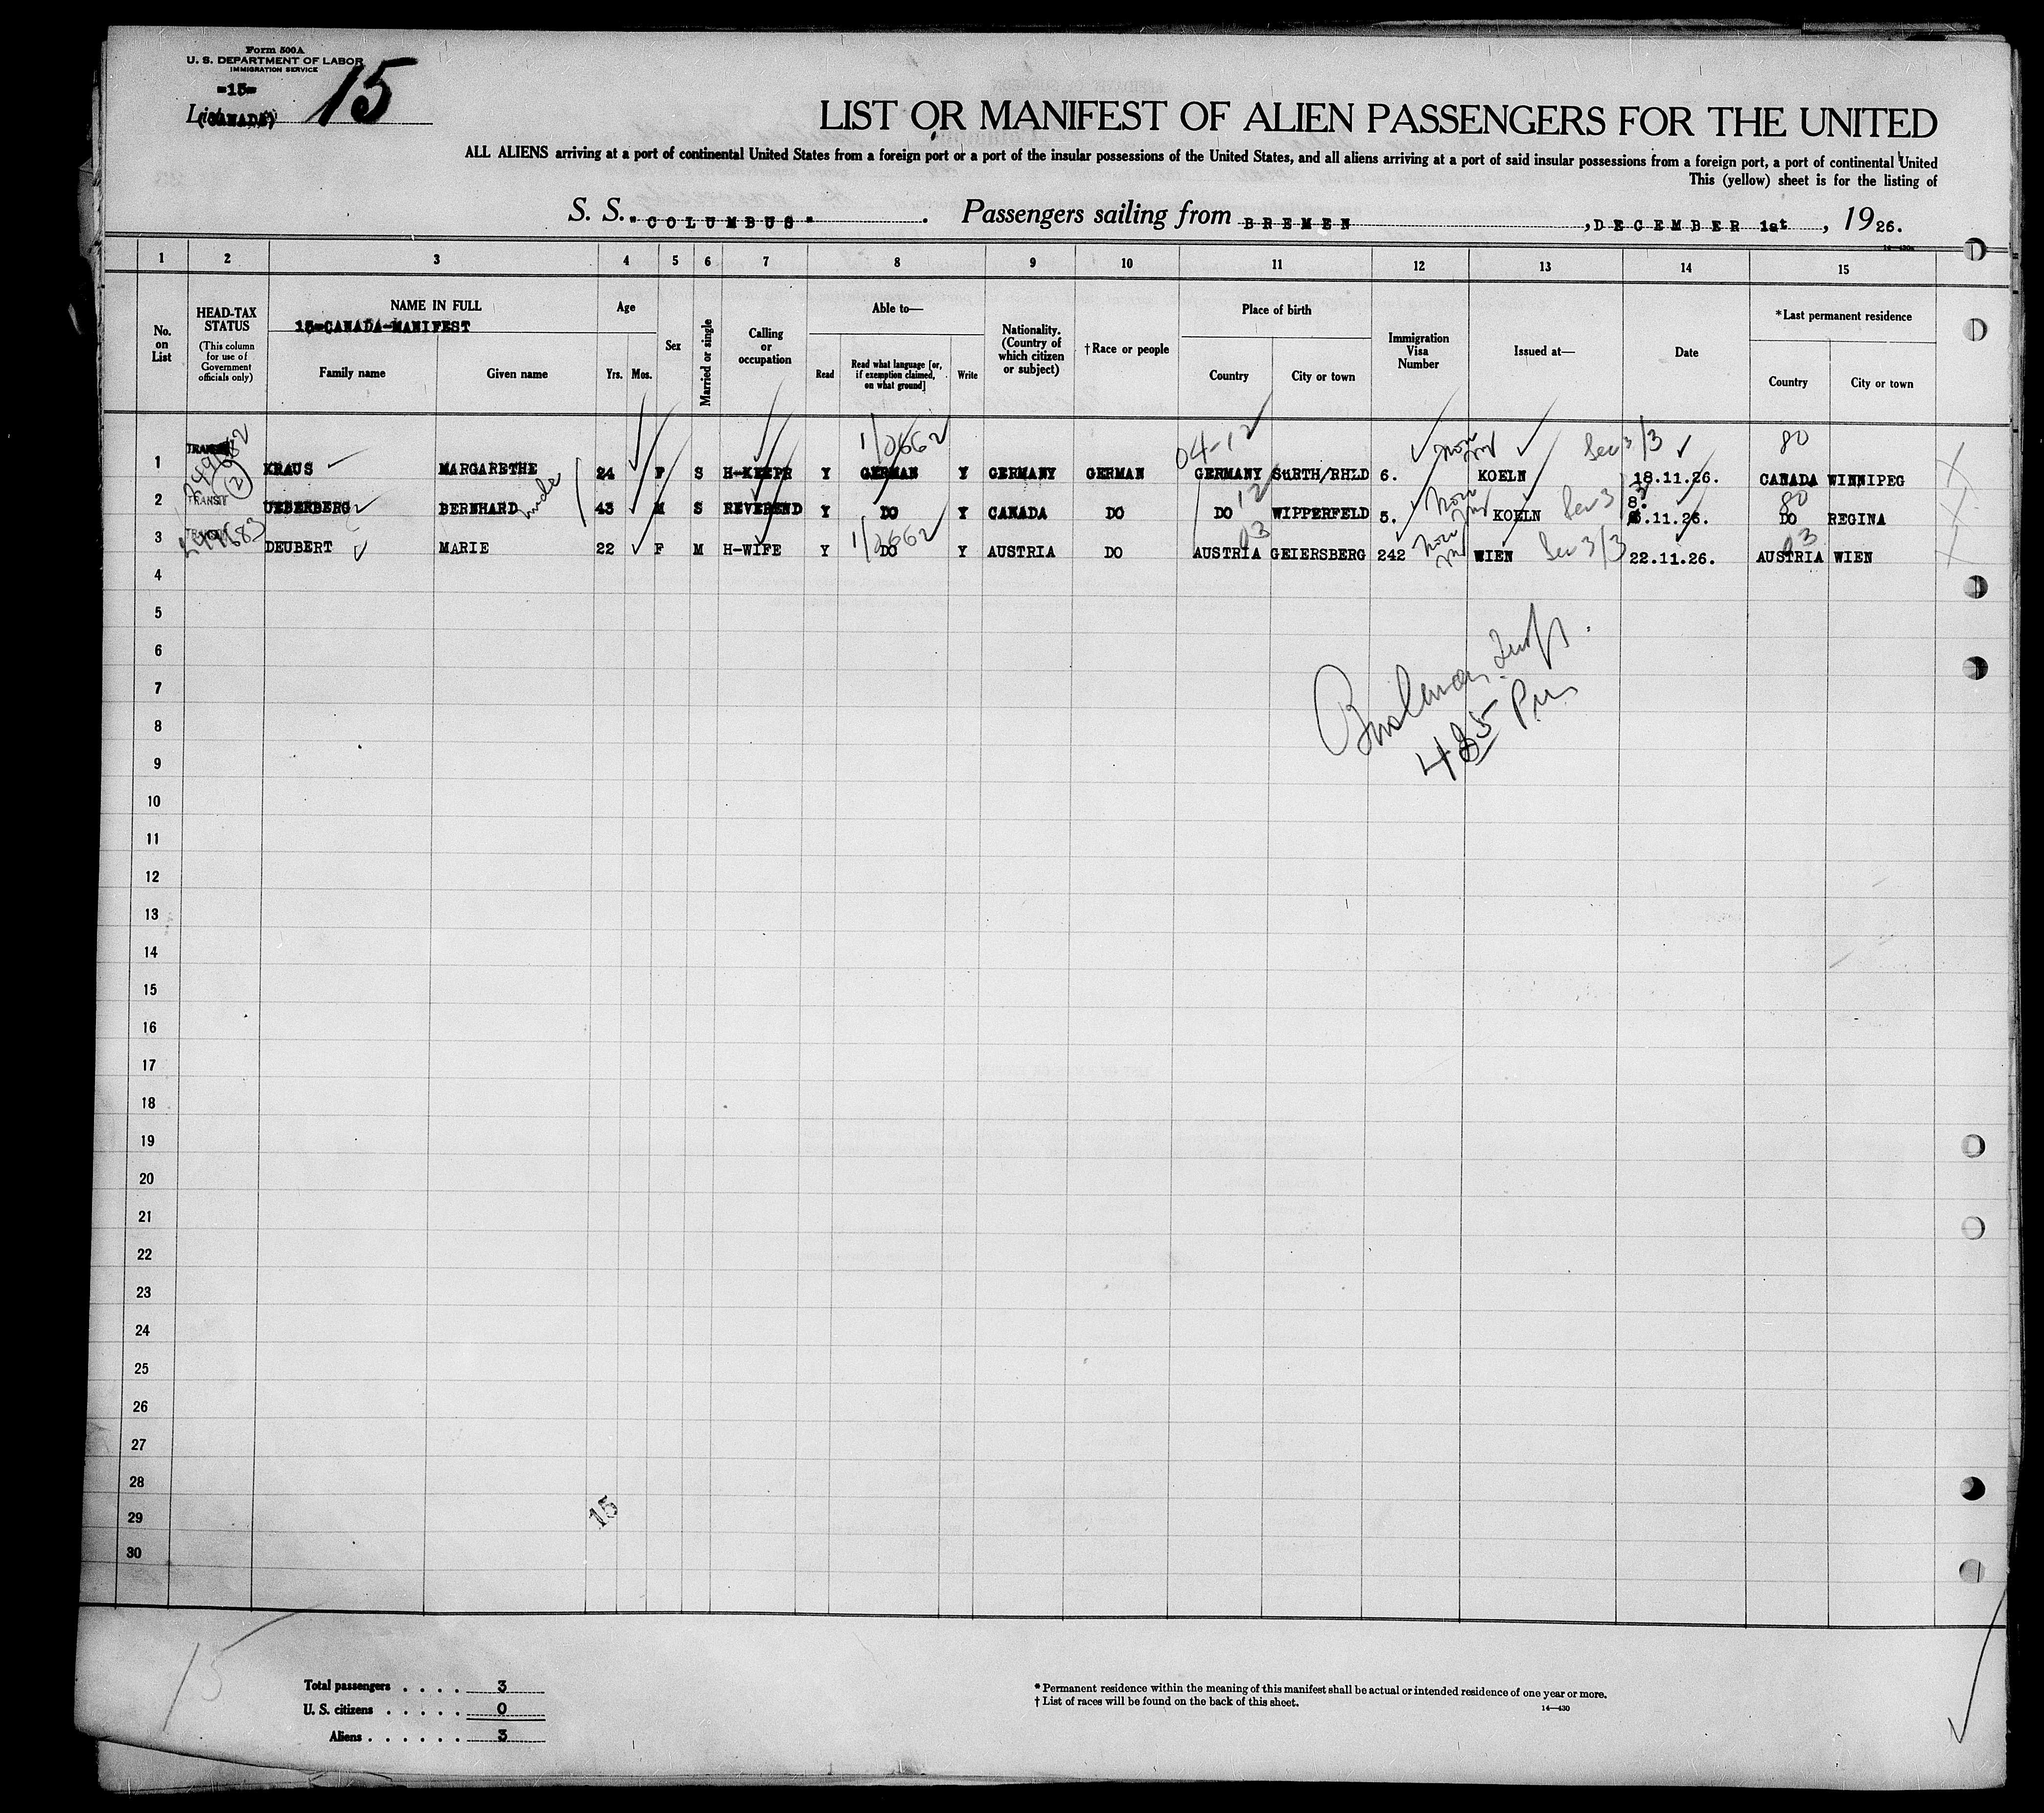 Form 500A
U. S. DEPARTMENT OF LABOR
IMMIGRATION SERVICE
-15-
List
(CANADA)
15
LIST OR MANIFEST OF ALIEN PASSENGERS FOR THE UNITED
ALL ALIENS arriving at a port of continental United States from a foreign port or a port of the insular possessions of the United States, and all aliens arriving at a port of said insular possessions from a foreign port, a port of continental United
This (yellow) sheet is for the listing of
S. S. "COLUMBUS". Passengers sailing from BREMEN, DECEMBER 1st, 1926.
1 2 3 4 5 6 7 8 9 10 11 12 13 14 15
No. on List
HEAD-TAX STATUS
(This column for use of Government officials only)
NAME IN FULL
15-CANADA-MANIFEST
Family name Given name
Age
Yrs. Mos.
Sex
Married or single
Calling or occupation
Able to—
Read
Read what language [or, if exemption claimed, on what ground]
Write
Nationality. (Country of which citizen or subject)
†Race or people
Place of birth
Country City or town
Immigration Visa Number
Issued at—
Date
*Last permanent residence
Country City or town
1 TRANSIT KRAUS MARGARETHE 24 F S H-KEEPR Y GERMAN Y GERMANY GERMAN GERMANY SüRTH/RHLD 6. KOELN 18.11.26. CANADA WINNIPEG
2 TRANSIT UEBERBERG BERNHARD 43 M S REVEREND Y DO Y CANADA DO DO WIPPERFELD 5. KOELN 8.11.26. DO REGINA
3 TRANSIT DEUBERT MARIE 22 F M H-WIFE Y DO Y AUSTRIA DO AUSTRIA GEIERSBERG 242 WIEN 22.11.26. AUSTRIA WIEN
04-12
12
03
80
80
03
4
5
6
7
8
9
10
11
12
13
14
15
16
17
18
19
20
21
22
23
24
25
26
27
28
29
30
15
15
Total passengers . . . . 3
U. S. citizens . . . . . 0
Aliens . . . . . . 3
* Permanent residence within the meaning of this manifest shall be actual or intended residence of one year or more.
† List of races will be found on the back of this sheet.
14—430